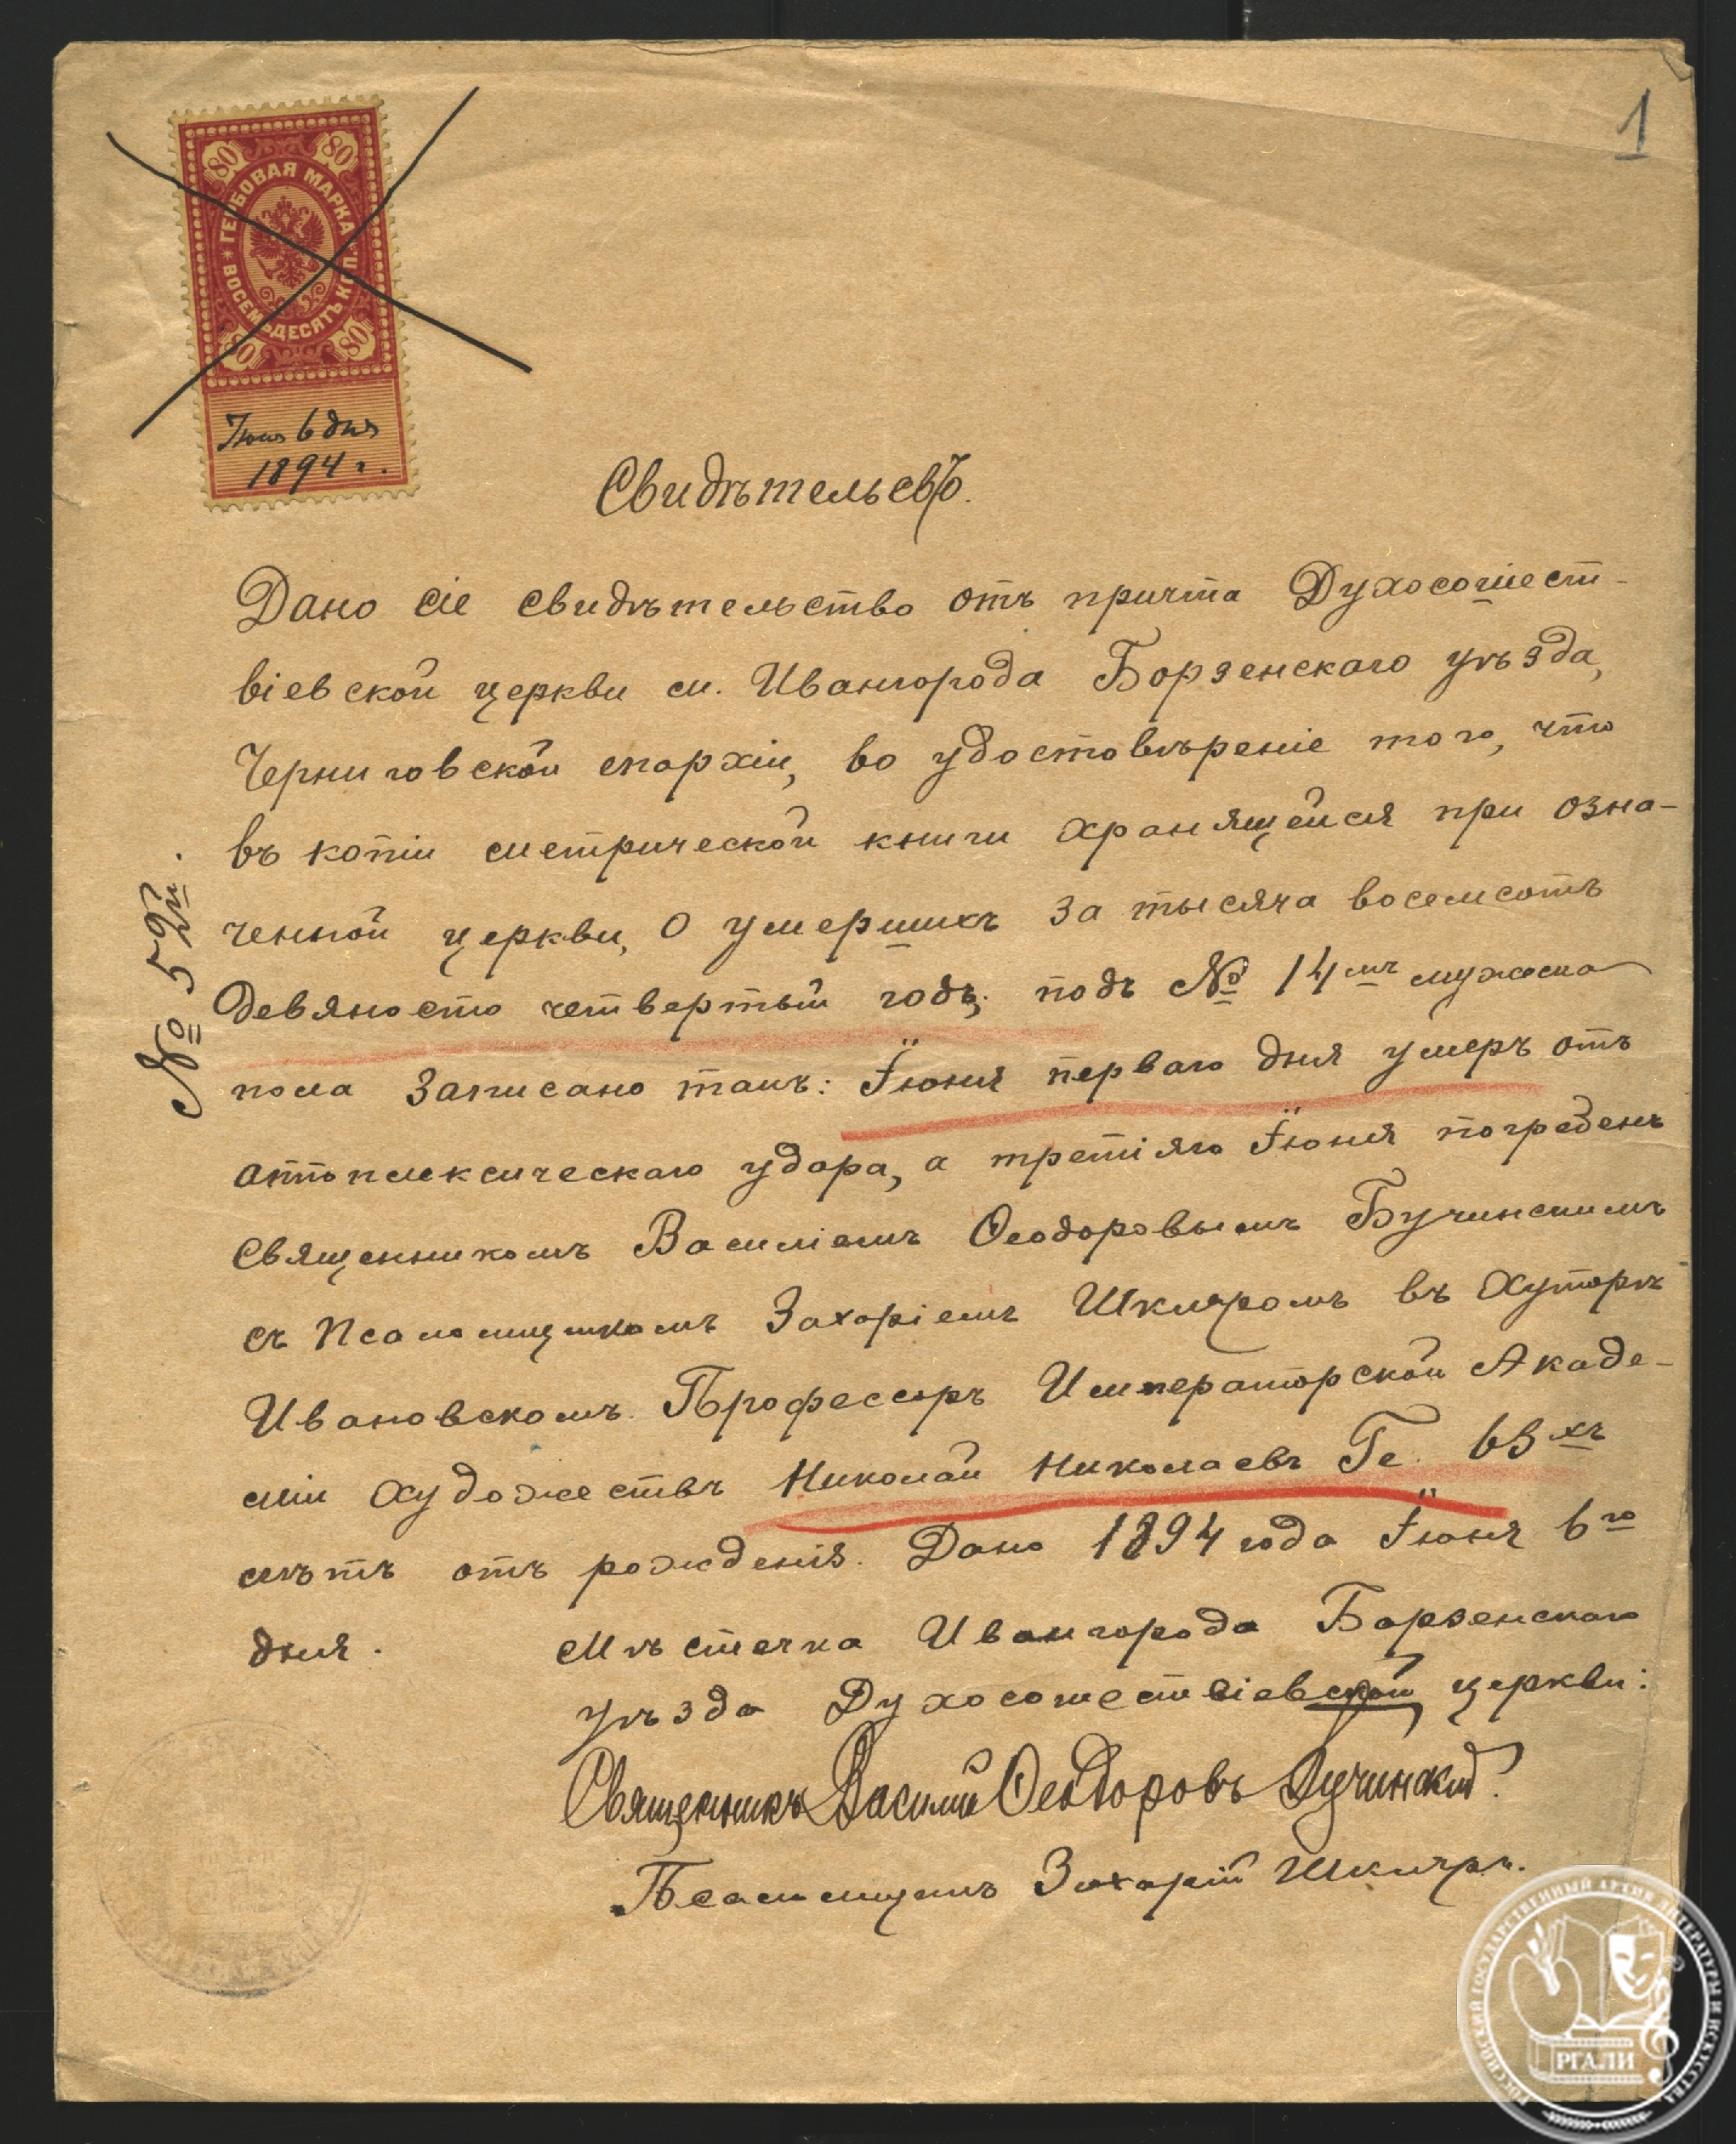 1
80 80
ГЕРБОВАЯ МАРКА
ВОСЕМЬДЕСЯТЪ КОП.
80 80
Іюня 6 дня
1894 г.
Свидѣтельство.
Дано сіе свидѣтельство отъ причта Духосошест-
віевской церкви м. Ивангорода Борзенскаго уѣзда,
Черниговской епархіи, во удостовѣреніе того, что
въ копіи метрической книги хранящейся при озна-
ченной церкви, о умершихъ за тысяча восемсотъ
девяносто четвертый годъ, подъ № 14мъ мужска
пола записано такъ: Іюня перваго дня умеръ отъ
апоплексическаго удара, а третіяго Іюня погребенъ
священникомъ Василіемъ Ѳеодоровымъ Бучинскимъ
съ псаломщикомъ Захаріемъ Шкляромъ въ Хуторѣ
Ивановскомъ. Профессоръ Императорской Академ-
міи художествъ Николай Николаевъ Ге. 63хъ
лѣтъ отъ рожденія. Дано 1894 года Іюня 6го
дня. Мѣстечка Ивангорода Борзенскаго
уѣзда Духосошествіевской церкви:
Священникъ Василій Ѳеодоровъ Бучинскій.
Псаломщикъ Захарій Шкляръ.
№ 52й.
РОССИЙСКИЙ ГОСУДАРСТВЕННЫЙ АРХИВ ЛИТЕРАТУРЫ И ИСКУССТВА
РГАЛИ